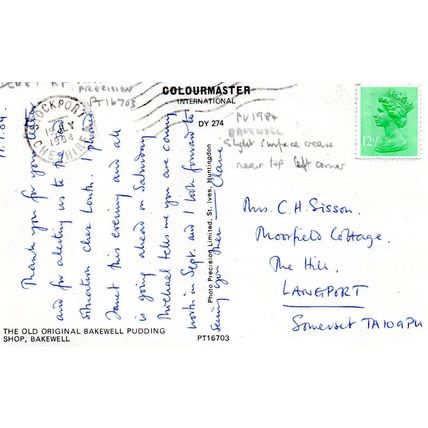 PRECISION
PT16703
COLOURMASTER
INTERNATIONAL
DY 274
STOCKPORT
JLY
1984
CHESHIRE
PV1984
BAKEWELL
Slight surface crease
near top left corner
12½
Thank you for your letter
and for alerting us to the
situation chez Lorik. I
Janet this evening and all
is going ahead on Saturday
Michael tells me you are coming
north in Sept. and I look forward to
seeing you then
Photo Precision Limited, St. Ives, Huntingdon
Mrs. C.H. Sisson.
Moorfield Cottage.
The Hill,
LANGPORT
Somerset TA10 9PU
THE OLD ORIGINAL BAKEWELL PUDDING
SHOP, BAKEWELL
PT16703